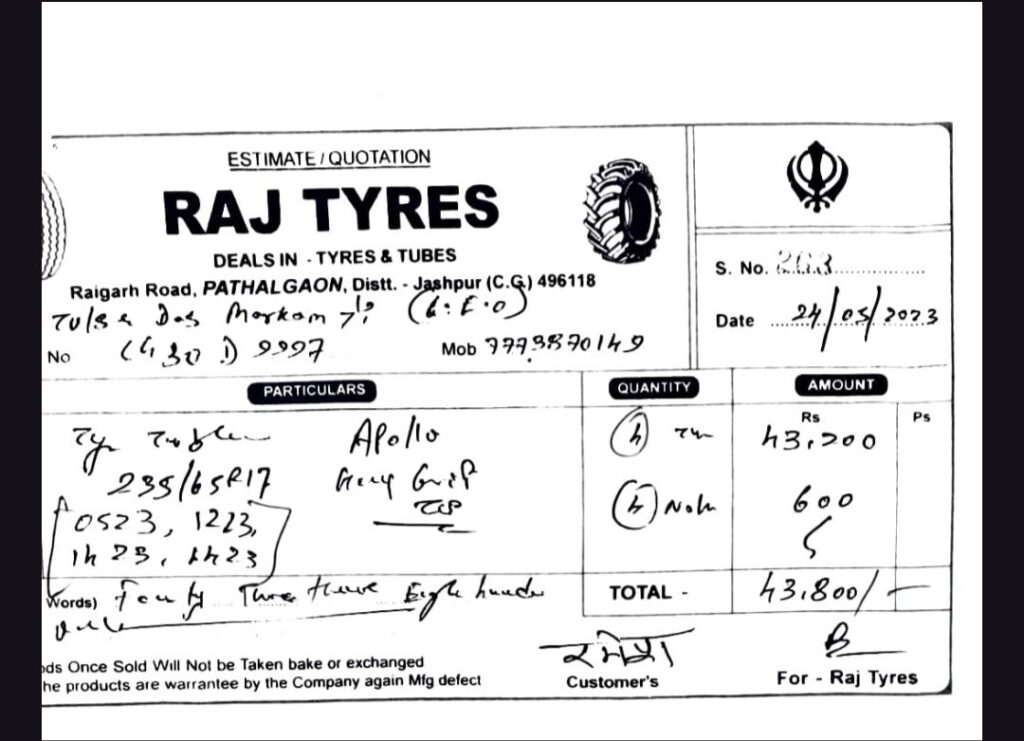 ESTIMATE / QUOTATION
RAJ TYRES
DEALS IN - TYRES & TUBES
Raigarh Road, PATHALGAON, Distt. - Jashpur (C.G.) 496118
S. No. 203
Date 24/05/2023
Das Markam (C.E.O)
No 9997
Mob
PARTICULARS QUANTITY AMOUNT
Rs Ps
Apollo 4 43,200
235/65R17 Grip
4 600
0523, 1223,
1423, 1423
Words) Fourty Three Eight
TOTAL - 43,800/-
ods Once Sold Will Not be Taken bake or exchanged
he products are warrantee by the Company again Mfg defect
रमेश
Customer's
For - Raj Tyres